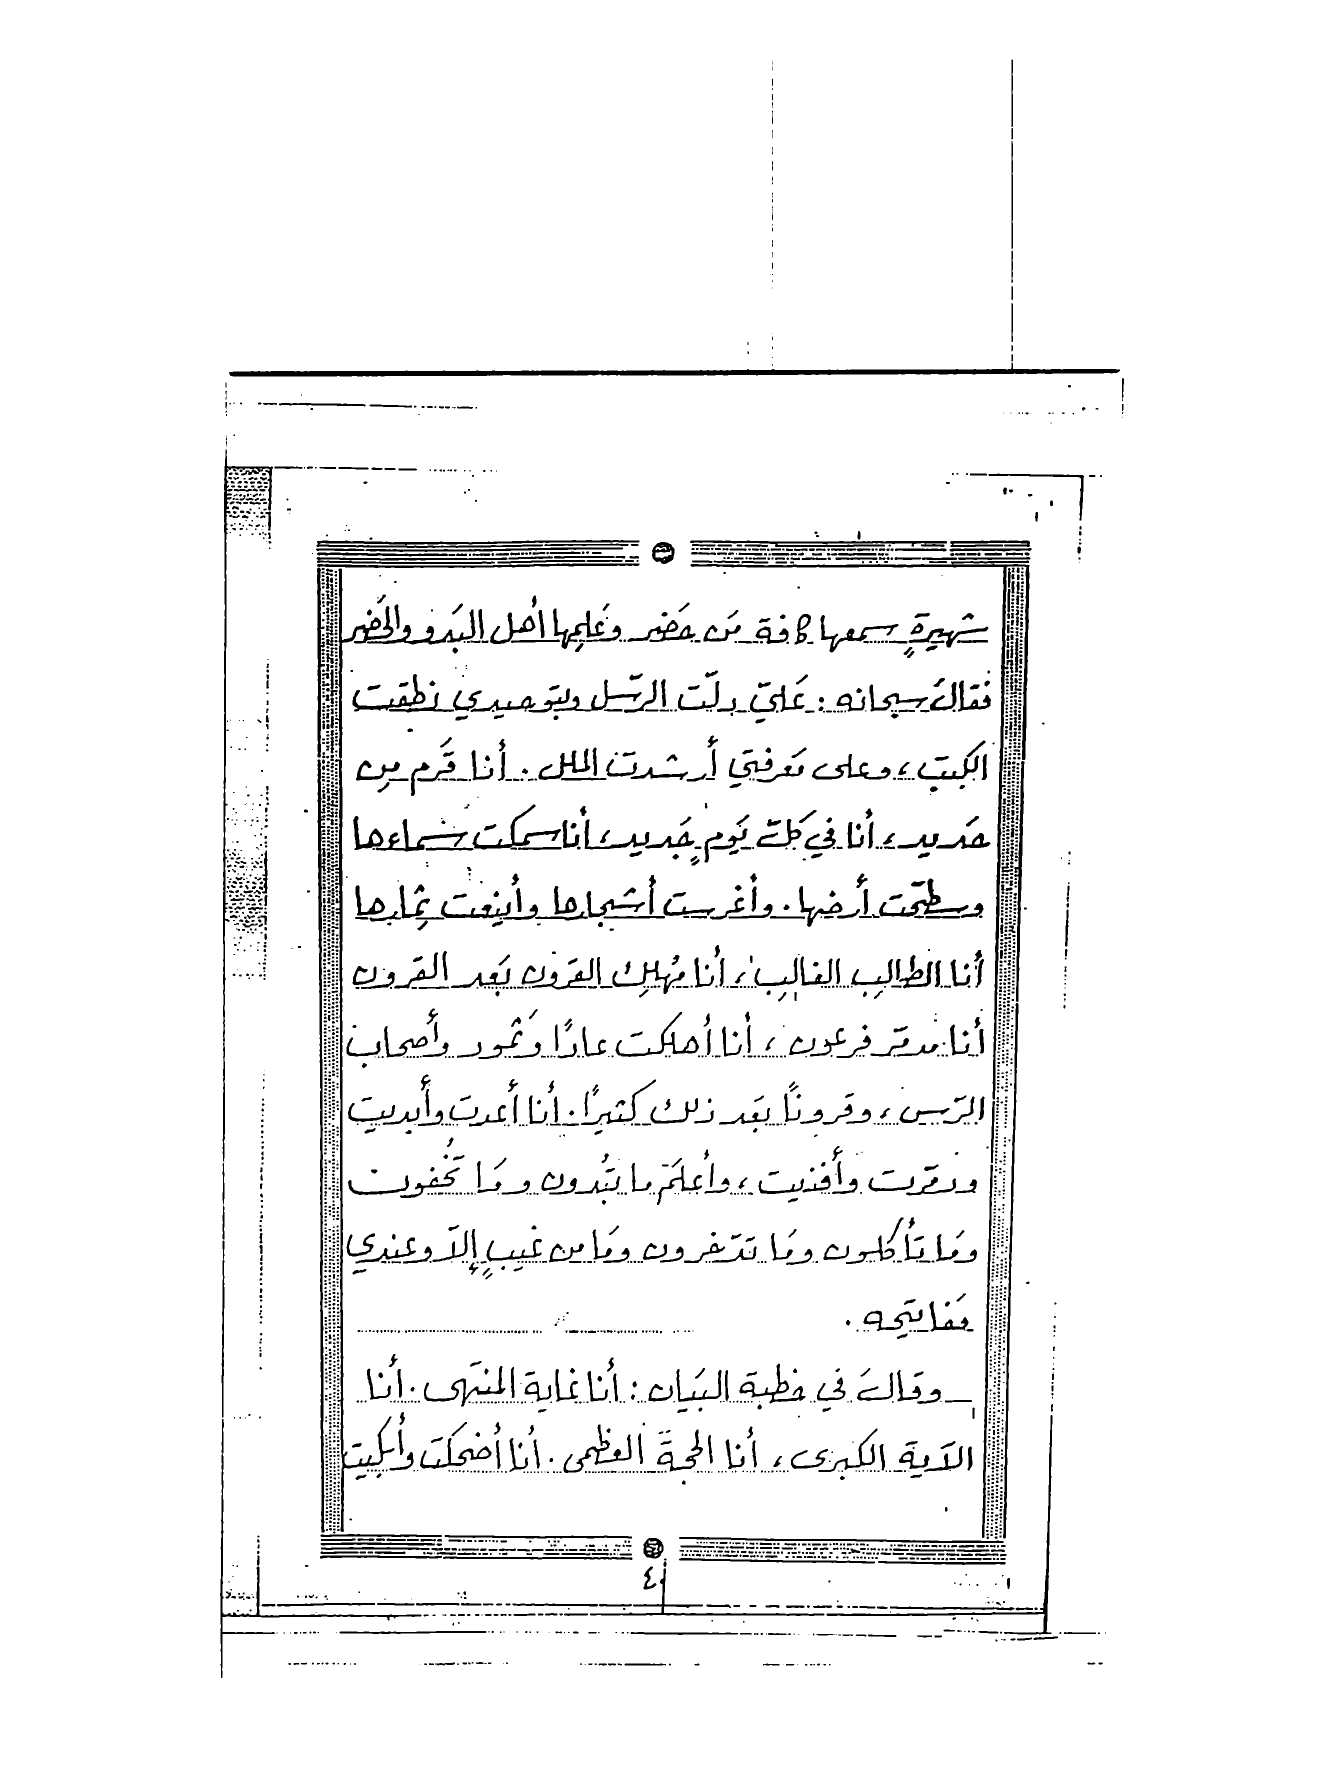 شهيرةٍ سمعها كافة مَن حَضر وعَلِمها أهل البَدو والحَضر
فقالَ سبحانه : عَليّ دلّت الرسّل وبتوَحيدي نطقت
الكتب ، وعلى مَعرفتي أرشدت الملل . أنا قَرم مِن
حَديد ، أنا في كلّ يَوم ٍجَديد ، أنا سمكت سَماءها
وسطحّت أرضها . وأغرست أشجارها وأينعت ثِمارها
أنا الطالِب الغالِب ، أنا مُهلِك القرَون بَعد القرَون
أنا مدمّر فرعون ، أنا أهلكت عادًا وثَمود وأصحاب
الرّس ، وقرونًا بعَد ذلك كثيرًا . أنا أعدت وأبديت
ودمّرت وأفنيت ، وأعلمَ ما تبُدون ومَا تُخفون
ومَا تأكلون ومَا تدّخرون ومَا من غَيبٍ إلاّ وعندي
مَفاتِحِه .
_ وقالَ في خطبة البيَان : أنا غاية المنتَهى . أنا
الآية الكبرى ، أنا الحجة العظمى . أنا أضحكت وأبكيت
٤٠